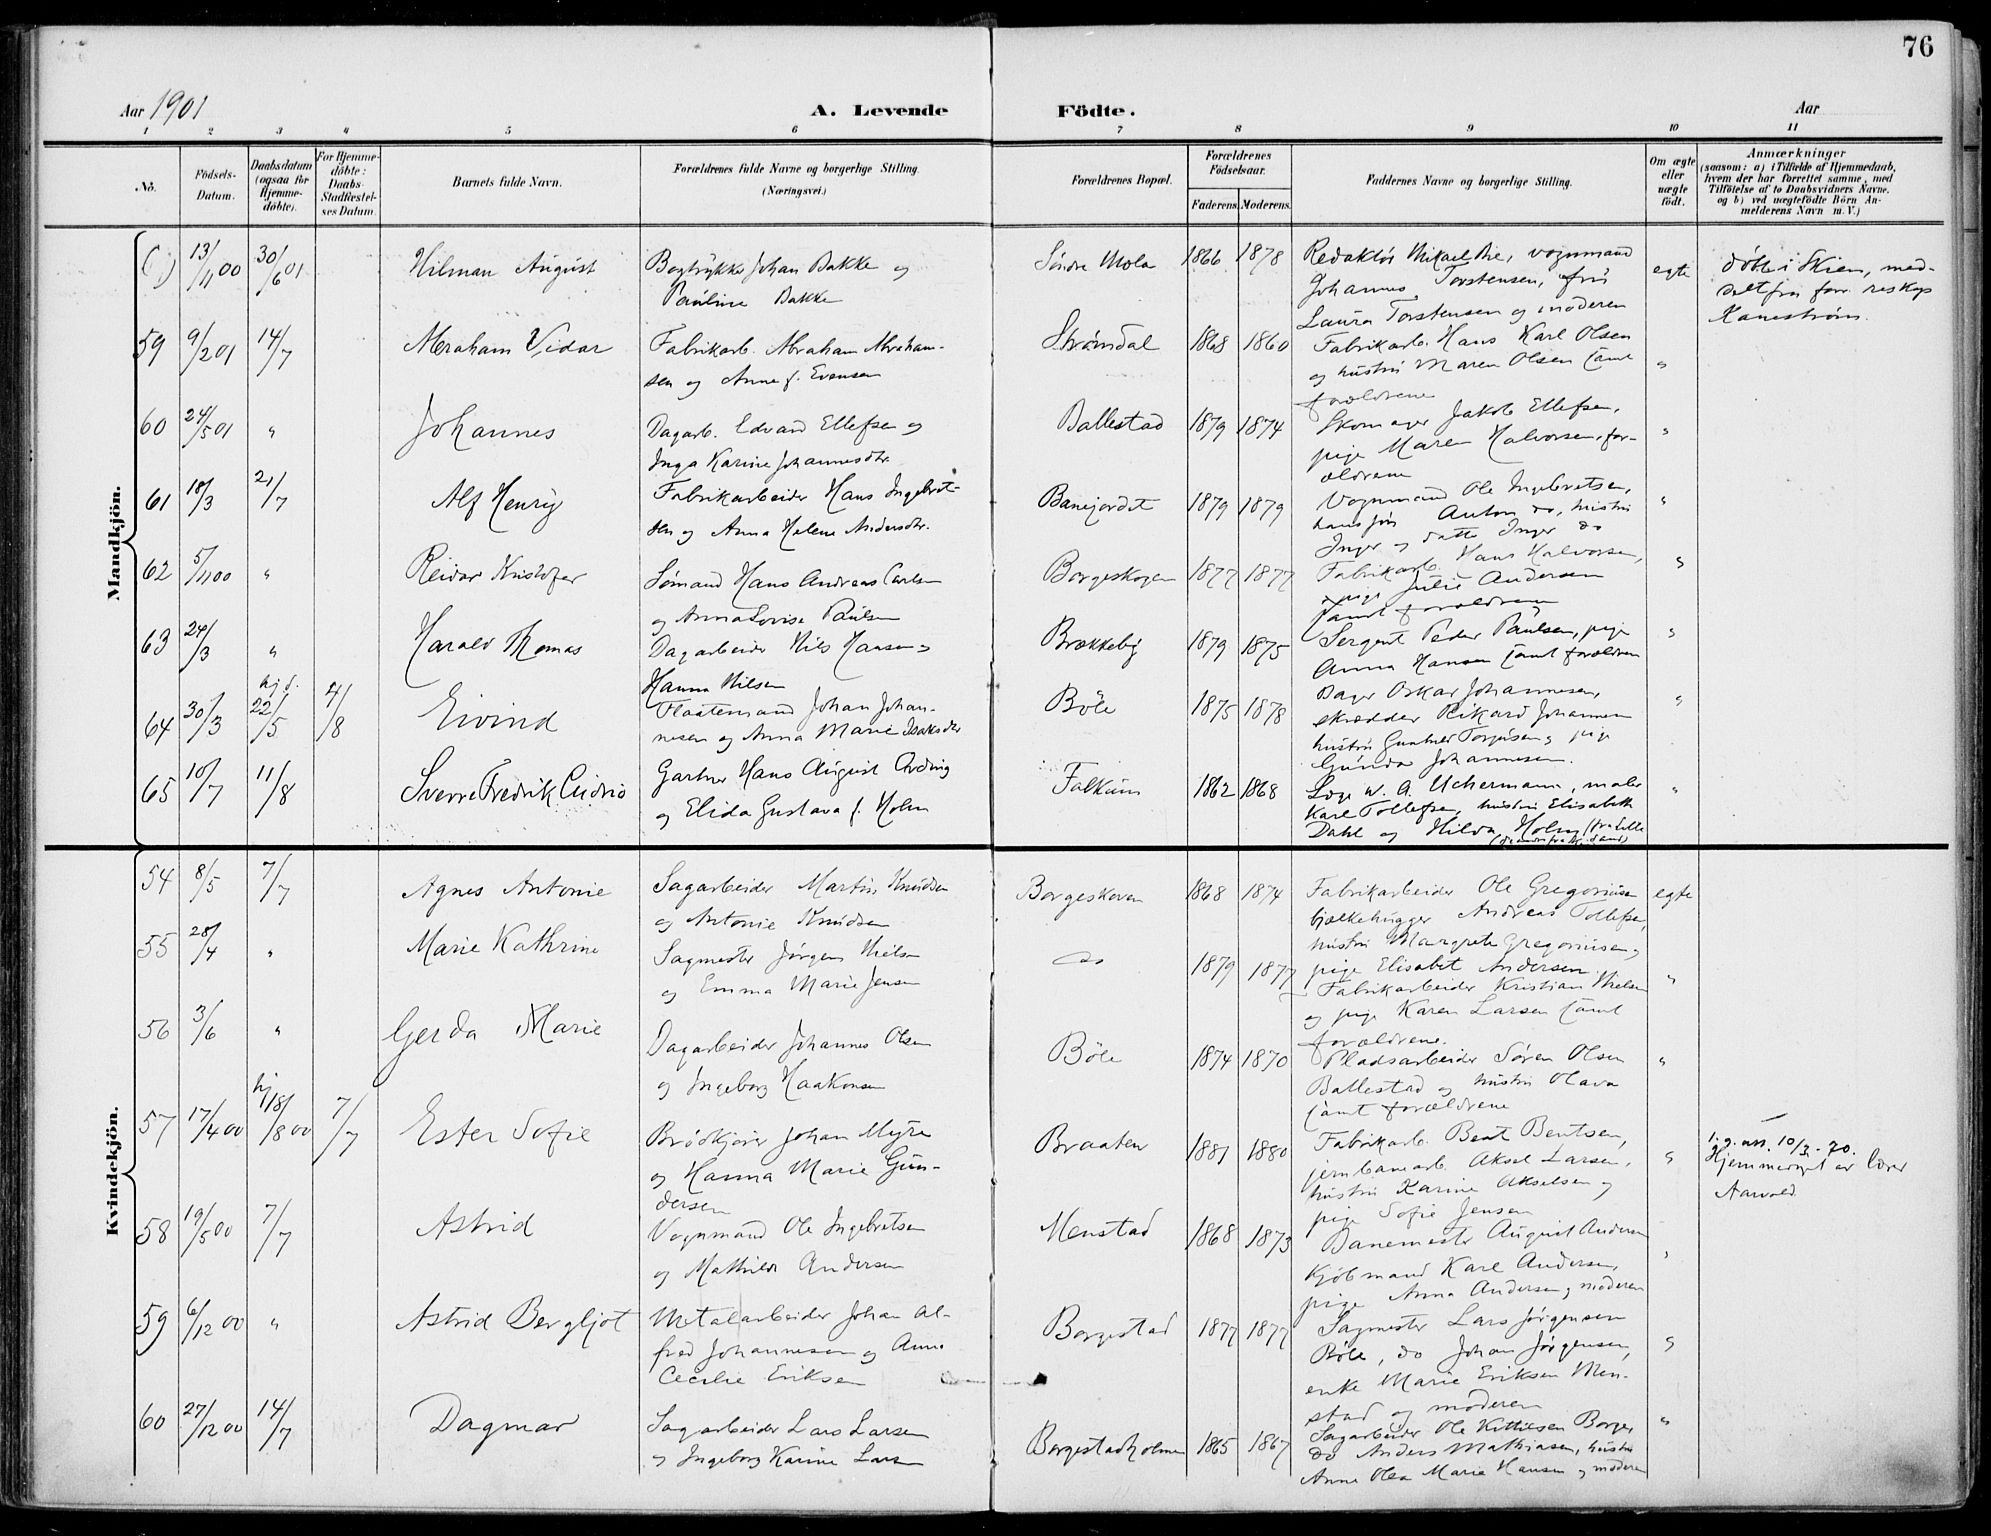 76
Aar 1901
A. Levende Födte.
Aar
1 2 3 4 5 6 7 8 9 10 11
No.
Födsels-Datum.
Daabsdatum (ogsaa for Hjemme-döbte).
For Hjemme-döbte: Daabs-Stadfæstel-ses Datum.
Barnets fulde Navn.
Forældrenes fulde Navne og borgerlige Stilling.
(Næringsvei.)
Forældrenes Bopæl.
Forældrenes Födselsaar.
Faderens. Moderens.
Faddernes Navne og borgerlige Stilling.
Om ægte eller uægte födt.
Anmærkninger
(saasom: a) i Tilfælde af Hjemmedaab,
hvem der har forrettet samme, med
Tilföielse af to Daabsvidners Navne.
og b) ved uægtefödte Börn An-
melderens Navn m. V.)
Mandkjön.
13/11 00 30/6 01 Hilman August
Bogtrykker Johan Bakke og
Pauline Bakke
Søndre Mæla 1866 1878
Redaktør Mikael Bie, vognmand
Johannes Torstensen, fru
Laura Torstensen og moderen
egte
døbt i Skien, med-
delt fra for. reskap
Kanestrøm.
59 9/2 01 14/7 Abraham Vidar
Fabrikarb. Abraham Abraham-
sen og Anne f. Evensen
Strømdal 1868 1860
Fabrikarb. Hans Karl Olsen
og hustru Maren Olsen samt
forældrene
"
60 24/5 01 " Johannes
Dagarb. Edvard Ellefsen og
Inga Karine Johannesdtr.
Ballestad 1879 1874
Skomager Jakob Ellefsen,
pige Maren Halvorsen, for-
ældrene
"
61 18/3 21/7 Alf Henrig
Fabrikarbeider Hans Ingebret-
sen og Anna Helene Andersdtr.
Banejordet 1879 1879
Vognmand Ole Ingebretsen,
hans søn Anton do, hustru
Inger og datter Inger do
"
62 5/11 00 " Reidar Kristofer
Sømand Hans Andreas Carlsen
og Anna Lovise Paulsen
Borgeskogen 1877 1877
Fabrikarb. Hans Halvorsen,
pige Julie Andersen
samt forældrene
"
63 24/3 " Harald Thomas
Dagarbeider Nils Hansen og
Hanna Nilsen
Brækkeby 1879 1875
Sergent Peder Paulsen, pige
Anna Hansen samt forældren
"
64 30/3 hj.d. 22/5 4/8 Eivind
Flaatemand Johan Johan-
nesen og Anna Marie Isaksdtr
Bøle 1875 1878
Bager Oskar Johannesen,
skrædder Rikard Johannesen
hustru Gunhild Torjusen og pige
Gunda Johannesen.
"
65 10/7 11/8 Sverre Fredrik
Gartner Hans August
og Elida Gustava f. Holm
Falkum 1862 1868
Læge W. A. Uchermann, maler
Karl Tollefsen, hustru Elisabeth
Dahl og Hilda Holm
"
Kvindekjön.
54 8/5 7/7 Agnes Antonie
Sagarbeider Martin Knudsen
og Antonie Knudsen
Borgeskoven 1868 1874
Fabrikarbeider Ole Gregoriusen
bjelkehugger Andreas Tollefsen,
hustru Margrete Gregoriusen og
pige Elisabet Andersen
egte
55 28/4 " Marie Kathrine
Sagmester Jørgen Nielsen
og Emma Marie Jensen
do 1879 1877
Fabrikarbeider Kristian Nielsen
og pige Karen Larsen samt
forældrene.
"
56 3/6 " Gerda Marie
Dagarbeider Johannes Olsen
og Ingeborg Haakonsen
Bøle 1874 1870
Pladsarbeider Søren Olsen
Ballestad og hustru Olava
samt forældrene
"
57 17/4 00 hj 18/8 00 7/7 Ester Sofie
Brødkjører Johan Myre
og Hanna Marie Gun-
dersen
Braaten 1881 1880
Fabrikarb. Bent Bentsen,
jernbanearb. Aksel Larsen,
hustru Karine Akselsen og
pige Sofie Jensen
"
10/3-70.
Hjemmedøpt av lærer
Aarvold
58 19/5 00 7/7 Astrid
Vognmand Ole Ingebretsen
og Mathilde Andersen
Menstad 1868 1873
Banemester August Andersen
Kjøbmand Karl Andersen,
pige Anna Andersen og moderen
"
59 6/12 00 " Astrid Bergljot
Metalarbeider Johan Al-
fred Johannesen og Anne
Cecilie Eriksen
Borgestad 1877 1877
Sagmester Lars Jørgensen
Bøle, do Johan Jørgensen,
enke Marie Eriksen Men-
stad og moderen
"
60 27/12 00 14/7 Dagmar
Sagarbeider Lars Larsen
og Ingeborg Karine Larsen
Borgestadholmen 1865 1867
Sagarbeider Ole Kittilsen Borge,
do Anders Mathiasen, hustru
Anne Olea Marie Hansen og moderen
"